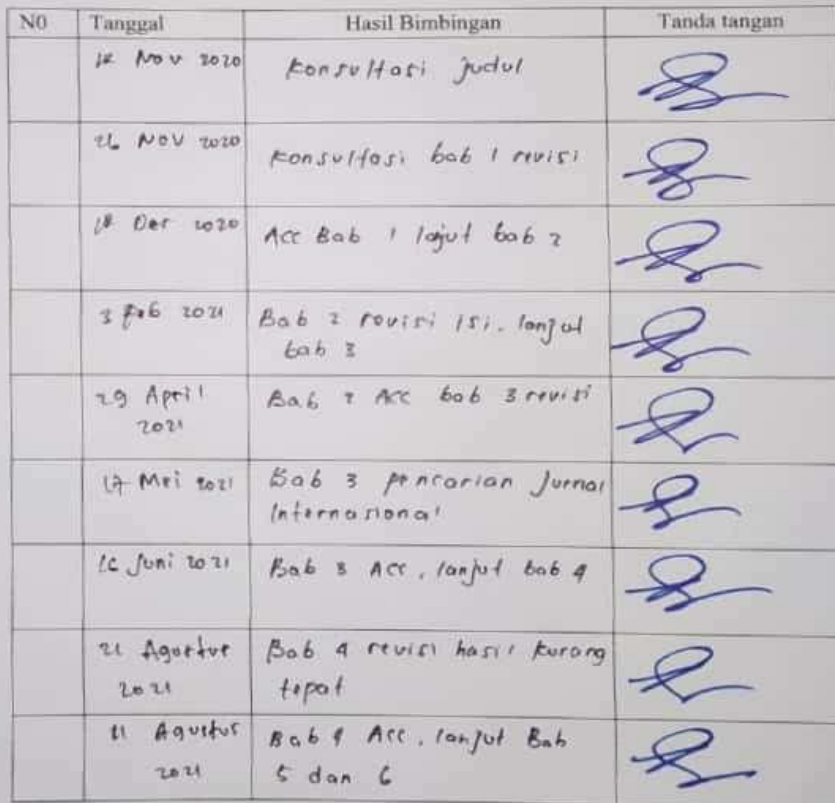 N0 Tanggal Hasil Bimbingan Tanda tangan
Nov 2020 Konsultasi judul
26 NOV 2020 Konsultasi bab 1 revisi
18 Des 2020 Acc Bab 1 lajut bab 2
3 Feb 2021 Bab 2 revisi isi. lanjut
bab 3
29 April Bab 2 Acc bab 3 revisi
2021
17 Mei 2021 Bab 3 pencarian Jurnal
Internasional
16 Juni 2021 Bab 3 Acc, lanjut bab 4
Agustus Bab 4 revisi hasil kurang
2021 tepat
Agustus Bab 4 Acc, lanjut Bab
2021 5 dan 6